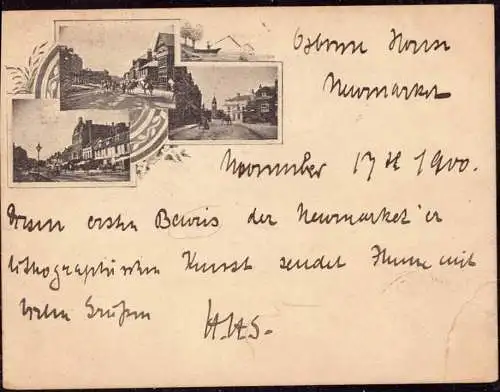 Osborne House
Newmarket
November 17th 1900.
Diesen ersten Beweis der Newmarket'er
lithographischen Kunst sendet Ihnen mit
vielen Grüßen H.H.S.